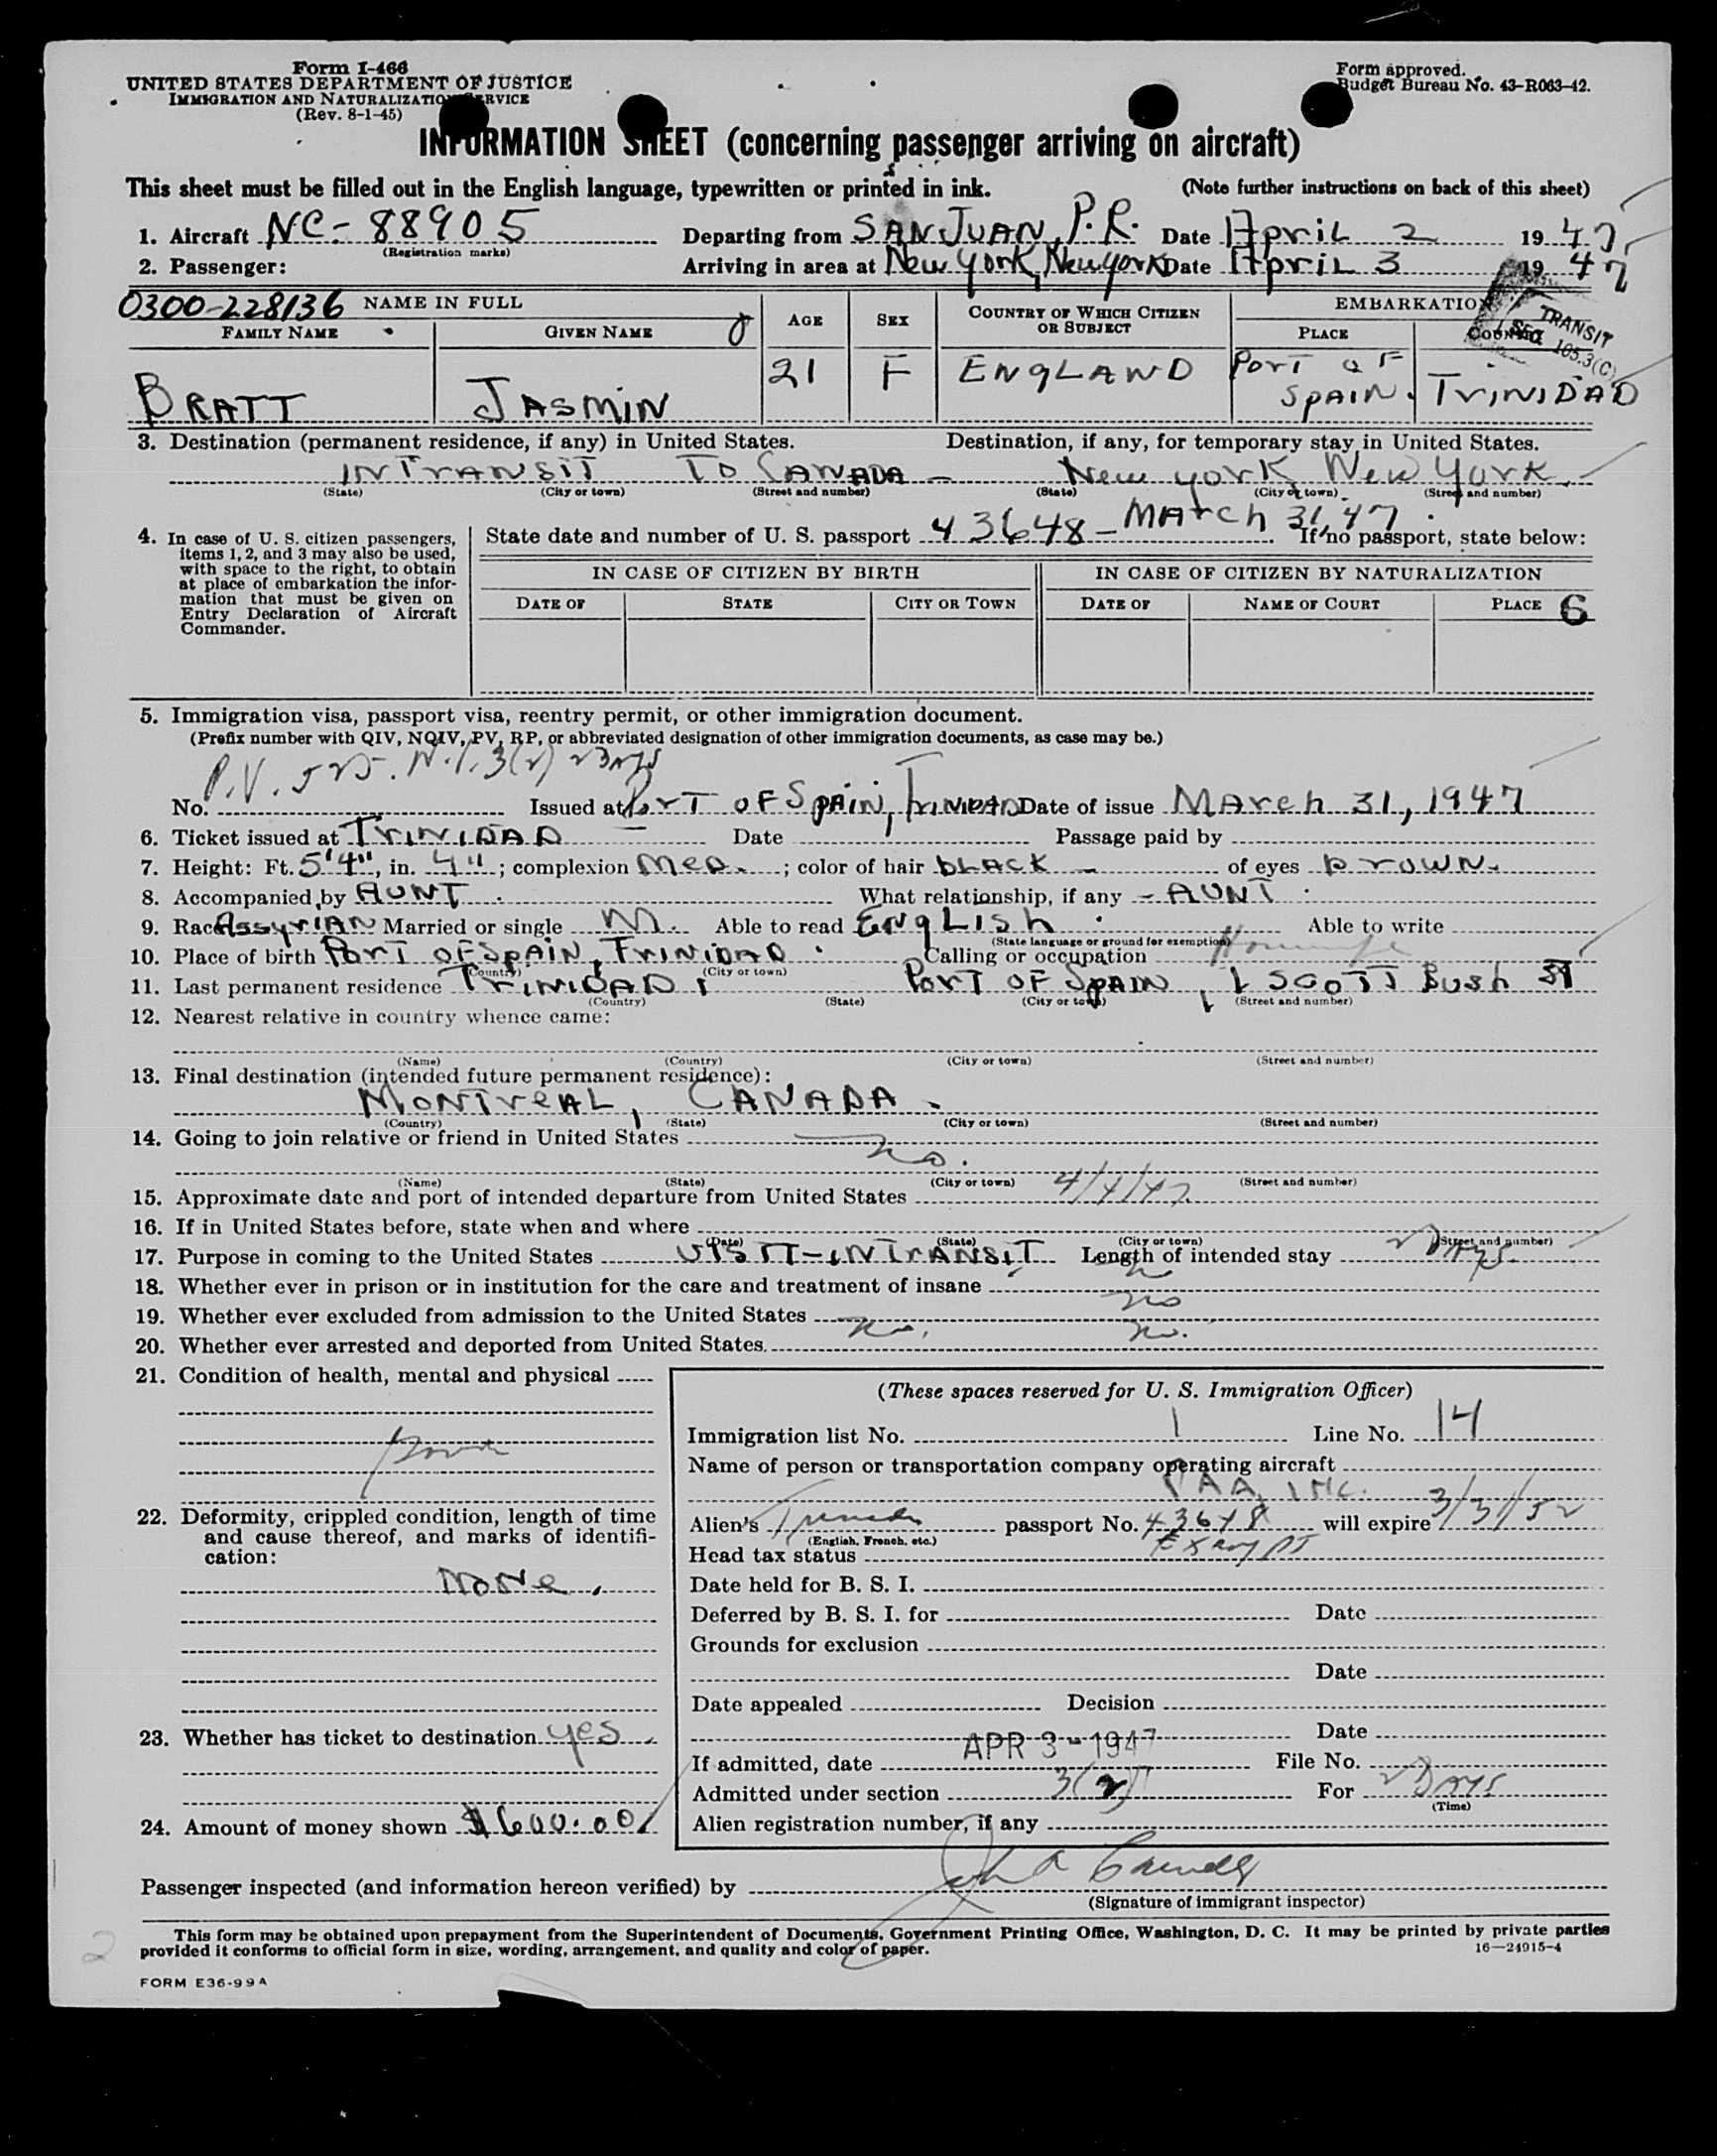 Form I-466
UNITED STATES DEPARTMENT OF JUSTICE
IMMIGRATION AND NATURALIZATION SERVICE
(Rev. 8-1-45)
Form approved.
Budget Bureau No. 43-R063-42.
INFORMATION SHEET (concerning passenger arriving on aircraft)
This sheet must be filled out in the English language, typewritten or printed in ink. (Note further instructions on back of this sheet)
1. Aircraft NC-88905 Departing from SAN JUAN, P.R. Date April 2 1947
(Registration marks)
2. Passenger: Arriving in area at New York, New York Date April 3 1947
0300-228136 NAME IN FULL AGE SEX COUNTRY OF WHICH CITIZEN OR SUBJECT EMBARKATION
FAMILY NAME GIVEN NAME PLACE COUNTRY
TRANSIT SEC. 105.3(C)
BRATT JASMIN 21 F ENGLAND PORT OF SPAIN. TRINIDAD
3. Destination (permanent residence, if any) in United States. Destination, if any, for temporary stay in United States.
INTRANSIT TO CANADA - New York New York
(State) (City or town) (Street and number) (State) (City or town) (Street and number)
4. In case of U. S. citizen passengers, items 1, 2, and 3 may also be used, with space to the right, to obtain at place of embarkation the information that must be given on Entry Declaration of Aircraft Commander.
State date and number of U. S. passport 43648 - March 31, 47. If no passport, state below:
IN CASE OF CITIZEN BY BIRTH IN CASE OF CITIZEN BY NATURALIZATION
DATE OF STATE CITY OR TOWN DATE OF NAME OF COURT PLACE 6
5. Immigration visa, passport visa, reentry permit, or other immigration document.
(Prefix number with QIV, NQIV, PV, RP, or abbreviated designation of other immigration documents, as case may be.)
P.V. 525. 3(2)
No. Issued at PORT OF SPAIN, TRINIDAD Date of issue MARCH 31, 1947
6. Ticket issued at TRINIDAD Date Passage paid by
7. Height: Ft. 5'4", in. 4"; complexion MED. ; color of hair BLACK - of eyes BROWN.
8. Accompanied by AUNT. What relationship, if any - AUNT.
9. Race ASSYRIAN Married or single M. Able to read ENGLISH Able to write
(State language or ground for exemption)
10. Place of birth PORT OF SPAIN, TRINIDAD. Calling or occupation Housewife
(Country) (City or town)
11. Last permanent residence TRINIDAD, PORT OF SPAIN, 1 SCOTT BUSH ST
(Country) (State) (City or town) (Street and number)
12. Nearest relative in country whence came:
(Name) (Country) (City or town) (Street and number)
13. Final destination (intended future permanent residence):
MONTREAL, CANADA.
(Country) (State) (City or town) (Street and number)
14. Going to join relative or friend in United States
no.
(Name) (State) (City or town) (Street and number)
15. Approximate date and port of intended departure from United States 4/4/47
16. If in United States before, state when and where
(Date) (State) (City or town) (Street and number)
17. Purpose in coming to the United States VISIT-INTRANSIT Length of intended stay 2 Days.
18. Whether ever in prison or in institution for the care and treatment of insane no
19. Whether ever excluded from admission to the United States no.
20. Whether ever arrested and deported from United States. no.
21. Condition of health, mental and physical
good
22. Deformity, crippled condition, length of time and cause thereof, and marks of identification:
NONE.
23. Whether has ticket to destination yes.
24. Amount of money shown $600.00
(These spaces reserved for U. S. Immigration Officer)
Immigration list No. 1 Line No. 14
Name of person or transportation company operating aircraft
PAA, INC.
Alien's passport No. 43648 will expire 3/31/52
(English, French, etc.)
Head tax status Exempt
Date held for B. S. I.
Deferred by B. S. I. for Date
Grounds for exclusion
Date
Date appealed Decision
Date
If admitted, date APR 3-1947 File No.
Admitted under section 3(2) For 2 Days
(Time)
Alien registration number, if any
Passenger inspected (and information hereon verified) by
(Signature of immigrant inspector)
This form may be obtained upon prepayment from the Superintendent of Documents, Government Printing Office, Washington, D. C. It may be printed by private parties
provided it conforms to official form in size, wording, arrangement, and quality and color of paper. 16—24915-4
2
FORM E36-99A